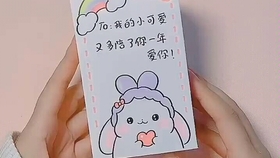 To:我的小可爱
又多陪了你一年
爱你!